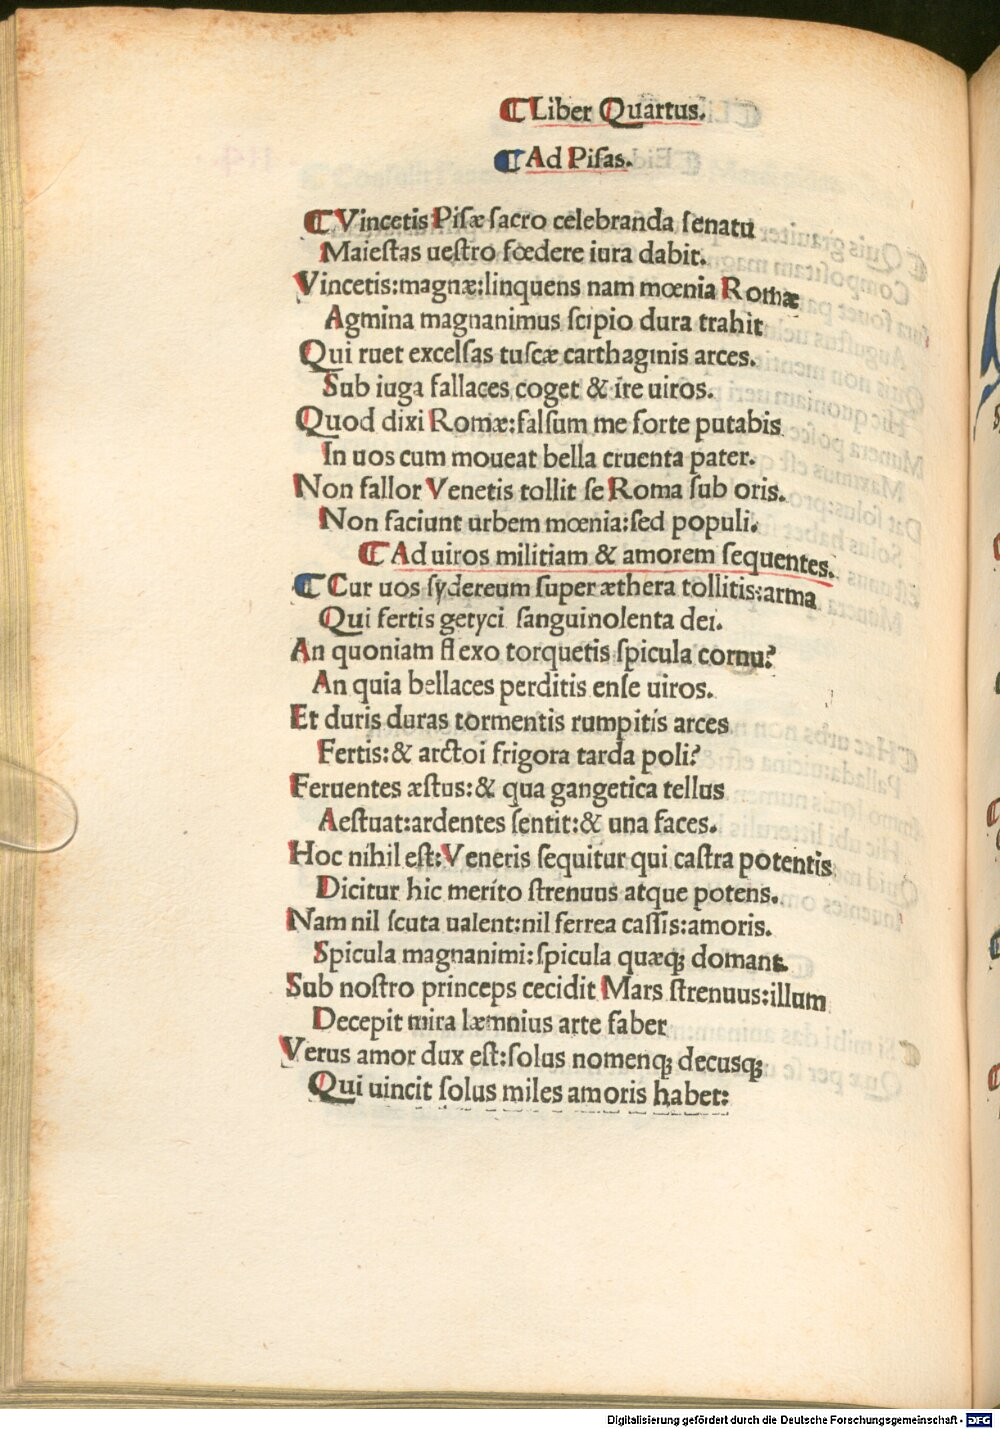 ¶ Liber Quartus.
¶ Ad Piſas.
¶ Vincetis Piſæ ſacro celebranda ſenatu
Maieſtas ueſtro fœdere iura dabit.
Vincetis:magnæ:linquens nam mœnia Romæ
Agmina magnanimus ſcipio dura trahit
Qui ruet excelſas tuſcæ carthaginis arces.
Sub iuga fallaces coget & ire uiros.
Quod dixi Romæ:falſum me forte putabis
In uos cum moueat bella cruenta pater.
Non fallor Venetis tollit ſe Roma ſub oris.
Non faciunt urbem mœnia:ſed populi.
¶ Ad uiros militiam & amorem ſequentes.
¶ Cur uos ſydereum ſuper æthera tollitis:arma
Qui fertis getyci ſanguinolenta dei.
An quoniam flexo torquetis ſpicula cornu?
An quia bellaces perditis enſe uiros.
Et duris duras tormentis rumpitis arces
Fertis:& arctoi frigora tarda poli?
Feruentes æſtus:& qua gangetica tellus
Aeſtuat:ardentes ſentit:& una faces.
Hoc nihil eſt:Veneris ſequitur qui caſtra potentis
Dicitur hic merito ſtrenuus atque potens.
Nam nil ſcuta ualent:nil ferrea caſſis:amoris.
Spicula magnanimi:ſpicula quæq; domant.
Sub noſtro princeps cecidit Mars ſtrenuus:illum
Decepit mira læmnius arte faber
Verus amor dux eſt:ſolus nomenq; decusq;
Qui uincit ſolus miles amoris habet:
Digitalisierung gefördert durch die Deutsche Forschungsgemeinschaft - DFG